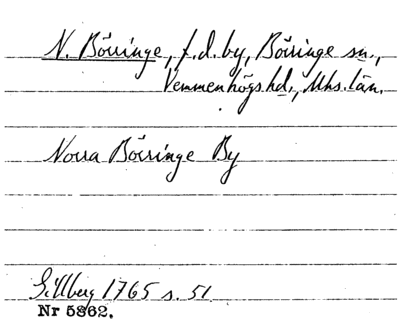 N. Börringe, f.d. by, Börringe sn.,
Vemmenhögs hd., Mhs. län.
Norra Börringe By
Gillberg 1765 s. 51
Nr 5862.